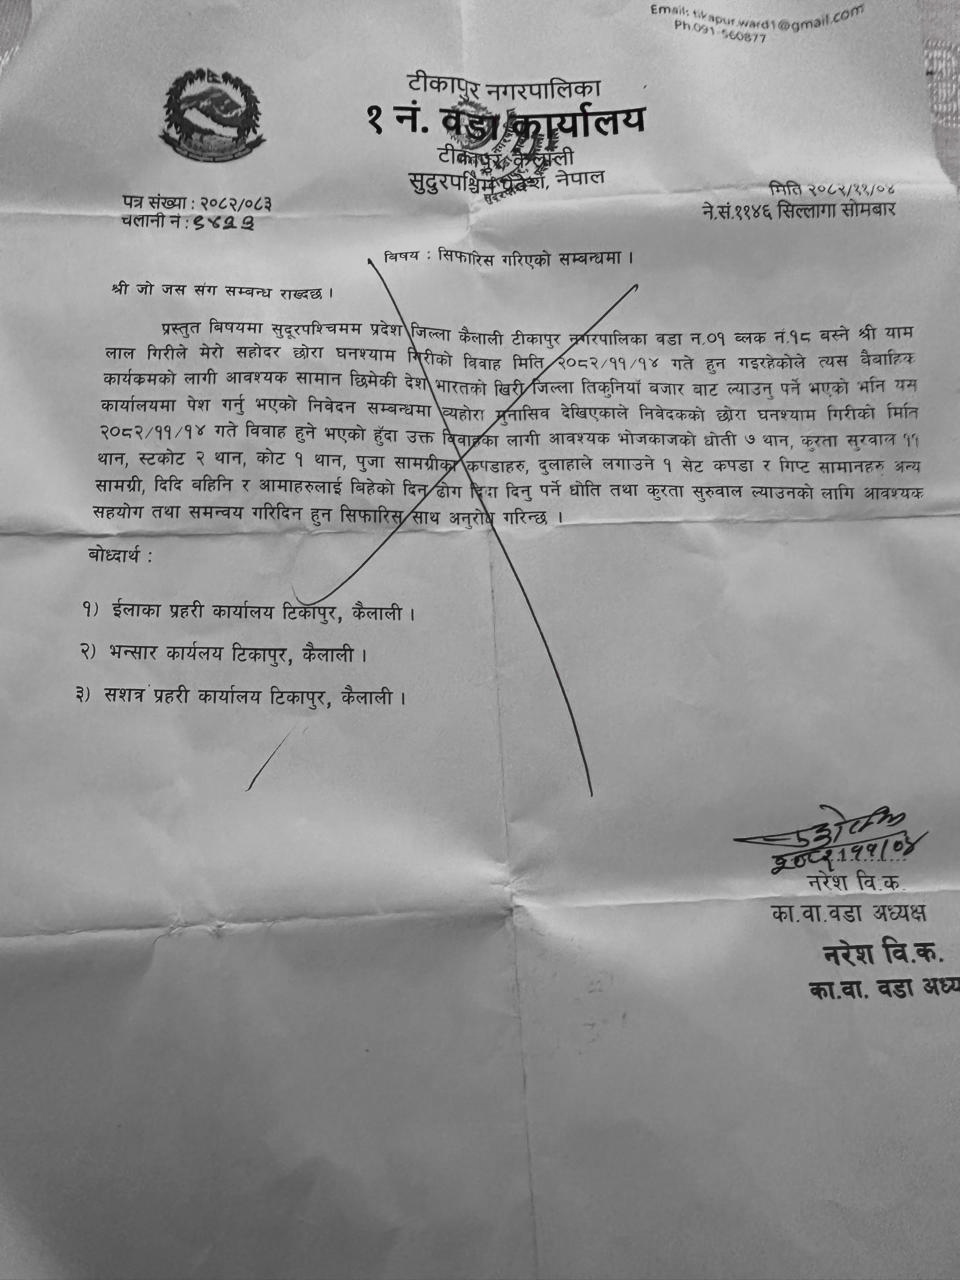 Email: tikapur.ward1@gmail.com
Ph.091-560877
टीकापुर नगरपालिका
१ नं. वडा कार्यालय
टीकापुर, कैलाली
सुदुरपश्चिम प्रदेश, नेपाल
पत्र संख्या : २०८२/०८३
चलानी नं :
मिति २०८२/११/०४
ने.सं.११४६ सिल्लागा सोमबार
विषय : सिफारिस गरिएको सम्बन्धमा ।
श्री जो जस संग सम्बन्ध राख्दछ ।
प्रस्तुत बिषयमा सुदूरपश्चिमम प्रदेश जिल्ला कैलाली टीकापुर नगरपालिका वडा न.०१ ब्लक नं.१८ बस्ने श्री याम
लाल गिरीले मेरो सहोदर छोरा घनश्याम गिरीको विवाह मिति २०८२/११/१४ गते हुन गइरहेकोले त्यस वैबाहिक
कार्यकमको लागी आवश्यक सामान छिमेकी देश भारतको खिरी जिल्ला तिकुनियाँ बजार बाट ल्याउनु पर्ने भएको भनि यस
कार्यालयमा पेश गर्नु भएको निवेदन सम्बन्धमा व्यहोरा मुनासिव देखिएकाले निवेदकको छोरा घनश्याम गिरीको मिति
२०८२/११/१४ गते विवाह हुने भएको हुँदा उक्त विवाहका लागी आवश्यक भोजकाजको धोती ७ थान, कुरता सुरवाल ११
थान, स्टकोट २ थान, कोट १ थान, पुजा सामग्रीका कपडाहरु, दुलाहाले लगाउने १ सेट कपडा र गिप्ट सामानहरु अन्य
सामग्री, दिदि बहिनि र आमाहरुलाई बिहेको दिन ढोग दिदा दिनु पर्ने धोति तथा कुरता सुरुवाल ल्याउनको लागि आवश्यक
सहयोग तथा समन्वय गरिदिन हुन सिफारिस साथ अनुरोध गरिन्छ ।
बोध्दार्थ :
१) ईलाका प्रहरी कार्यालय टिकापुर, कैलाली ।
२) भन्सार कार्यलय टिकापुर, कैलाली ।
३) सशत्र प्रहरी कार्यालय टिकापुर, कैलाली ।
२०८२/११/०४
नरेश वि.क.
का.वा.वडा अध्यक्ष
नरेश वि.क.
का.वा. वडा अध्य